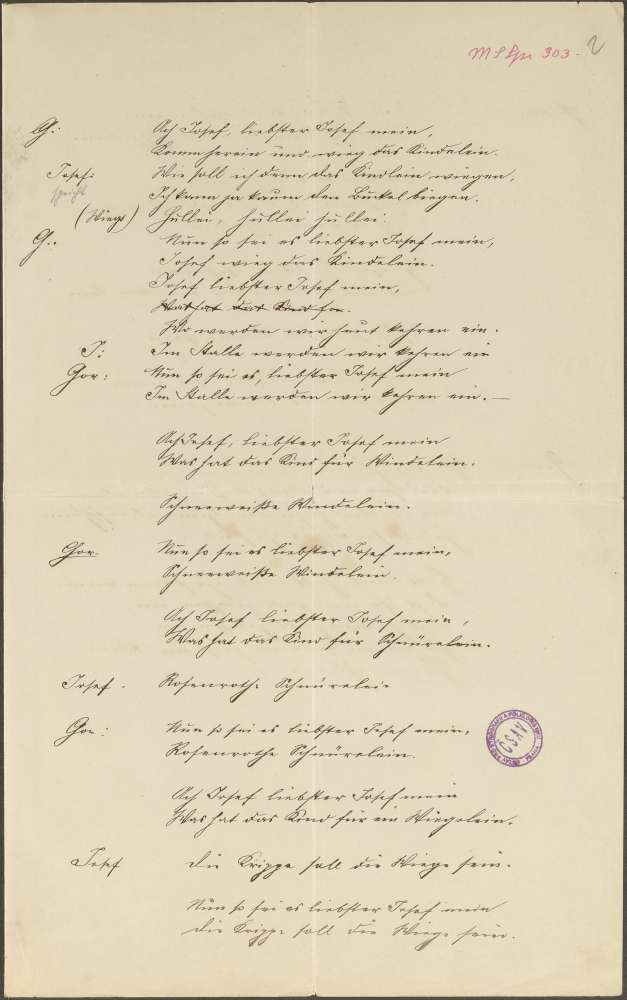 MS Spr 303-
2
G: Ach Josef, liebster Josef mein,
Komm herein und wieg das Kindelein.
Josef: Wie soll ich denn das Kindlein wiegen,
spricht Ich kann ja kaum den Buckel biegen.
(Wiegt) Hullei, hullei hullei.
G.. Nun so sei es liebster Josef mein,
Josef wieg das Kindelein.
Josef liebster Josef mein,
Was hat das Kind
Wo werden wir heut kehren ein.
J: Im Stalle werden wir kehren ein
Chor: Nun so sei es, liebster Josef mein
Im Stalle werden wir kehren ein. —
Ach Josef, liebster Josef mein
Was hat das Kind für Windelein.
Schneeweiße Windelein.
Chor. Nun so sei es liebster Josef mein,
Schneeweiße Windelein.
Ach Josef liebster Josef mein,
Was hat das Kind für Schnürelein.
Josef. Rosenrothe Schnürelein
Chor: Nun so sei es liebster Josef mein,
Rosenrothe Schnürelein.
ČSAV
PRAHA
Ach Josef liebster Josef mein
Was hat das Kind für ein Wiegelein.
Josef Die Krippe soll die Wiege sein.
Nun so sei es liebster Josef mein
Die Krippe soll die Wiege sein.